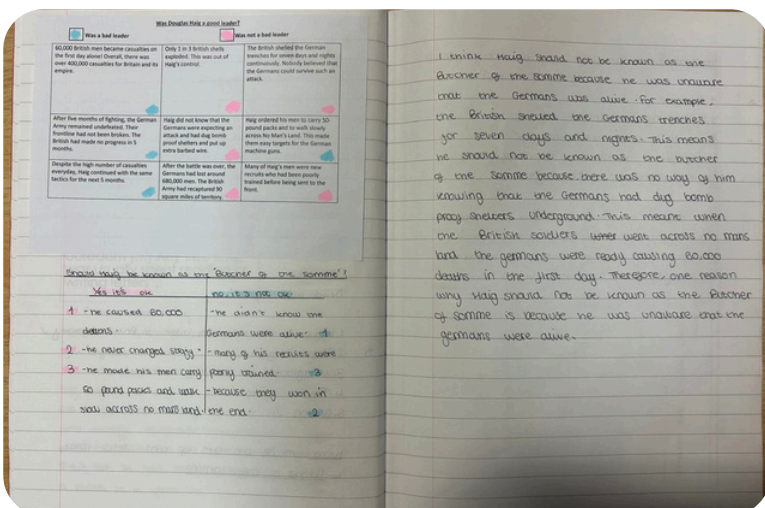 Was Douglas Haig a good leader?
Was a bad leader
Was not a bad leader
60,000 British men became casualties on
the first day alone! Overall, there was
over 400,000 casualties for Britain and its
empire.
Only 1 in 3 British shells
exploded. This was out of
Haig's control.
The British shelled the German
trenches for seven days and nights
continuously. Nobody believed that
the Germans could survive such an
attack.
After five months of fighting, the German
Army remained undefeated. Their
frontline had not been broken. The
British had made no progress in 5
months.
Haig did not know that the
Germans were expecting an
attack and had dug bomb
proof shelters and put up
extra barbed wire.
Haig ordered his men to carry 50-
pound packs and to walk slowly
across No Man's Land. This made
them easy targets for the German
machine guns.
Despite the high number of casualties
everyday, Haig continued with the same
tactics for the next 5 months.
After the battle was over, the
Germans had lost around
680,000 men. The British
Army had recaptured 90
square miles of territory.
Many of Haig's men were new
recruits who had been poorly
trained before being sent to the
front.
Should Haig be known as the "Butcher of the Somme"?
Yes it's ok
no, it's not ok
1 - he caused 60,000
deaths.
2 - he never changed
3 - he made his men carry
50 pound packs and walk
slow accross no mans land.
- he didn't know the
Germans were alive. 1
- many of his recruits were
poorly trained. 3
- because they won in
the end. 2
I think Haig should not be known as the
Butcher of the somme because he was unaware
that the Germans was alive. For example,
the British shelled the Germans trenches
for seven days and nights. This means
he should not be known as the butcher
of the somme because there was no way of him
knowing that the Germans had dug bomb
proof shelters underground. This meant when
the British soldiers went across no mans
land the germans were ready causing 60,000
deaths in the first day. Therefore, one reason
why Haig should not be known as the Butcher
of somme is because he was unaware that the
germans were alive.